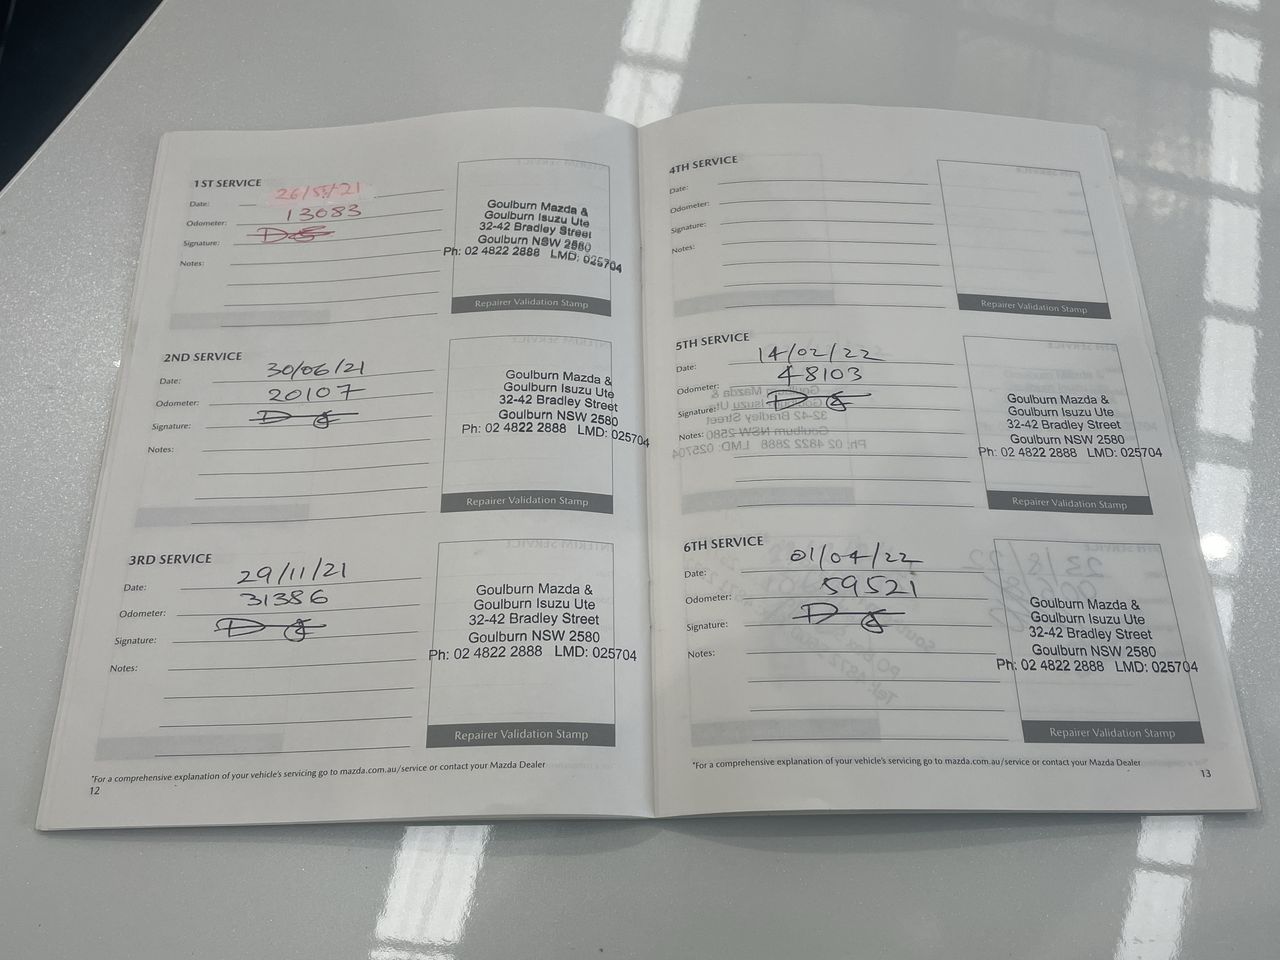 1ST SERVICE
Date: 26/5/21
Odometer: 13083
Signature:
Notes:
Goulburn Mazda &
Goulburn Isuzu Ute
32-42 Bradley Street
Goulburn NSW 2580
Ph: 02 4822 2888 LMD: 025704
Repairer Validation Stamp
2ND SERVICE
Date: 30/06/21
Odometer: 20107
Signature:
Notes:
Goulburn Mazda &
Goulburn Isuzu Ute
32-42 Bradley Street
Goulburn NSW 2580
Ph: 02 4822 2888 LMD: 025704
Repairer Validation Stamp
3RD SERVICE
Date: 29/11/21
Odometer: 31386
Signature:
Notes:
Goulburn Mazda &
Goulburn Isuzu Ute
32-42 Bradley Street
Goulburn NSW 2580
Ph: 02 4822 2888 LMD: 025704
Repairer Validation Stamp
*For a comprehensive explanation of your vehicle's servicing go to mazda.com.au/service or contact your Mazda Dealer
12
4TH SERVICE
Date:
Odometer:
Signature:
Notes:
Repairer Validation Stamp
5TH SERVICE
Date: 14/02/22
Odometer: 48103
Signature:
Notes:
Goulburn Mazda &
Goulburn Isuzu Ute
32-42 Bradley Street
Goulburn NSW 2580
Ph: 02 4822 2888 LMD: 025704
Repairer Validation Stamp
6TH SERVICE
Date: 01/04/22
Odometer: 59521
Signature:
Notes:
Goulburn Mazda &
Goulburn Isuzu Ute
32-42 Bradley Street
Goulburn NSW 2580
Ph: 02 4822 2888 LMD: 025704
Repairer Validation Stamp
*For a comprehensive explanation of your vehicle's servicing go to mazda.com.au/service or contact your Mazda Dealer
13